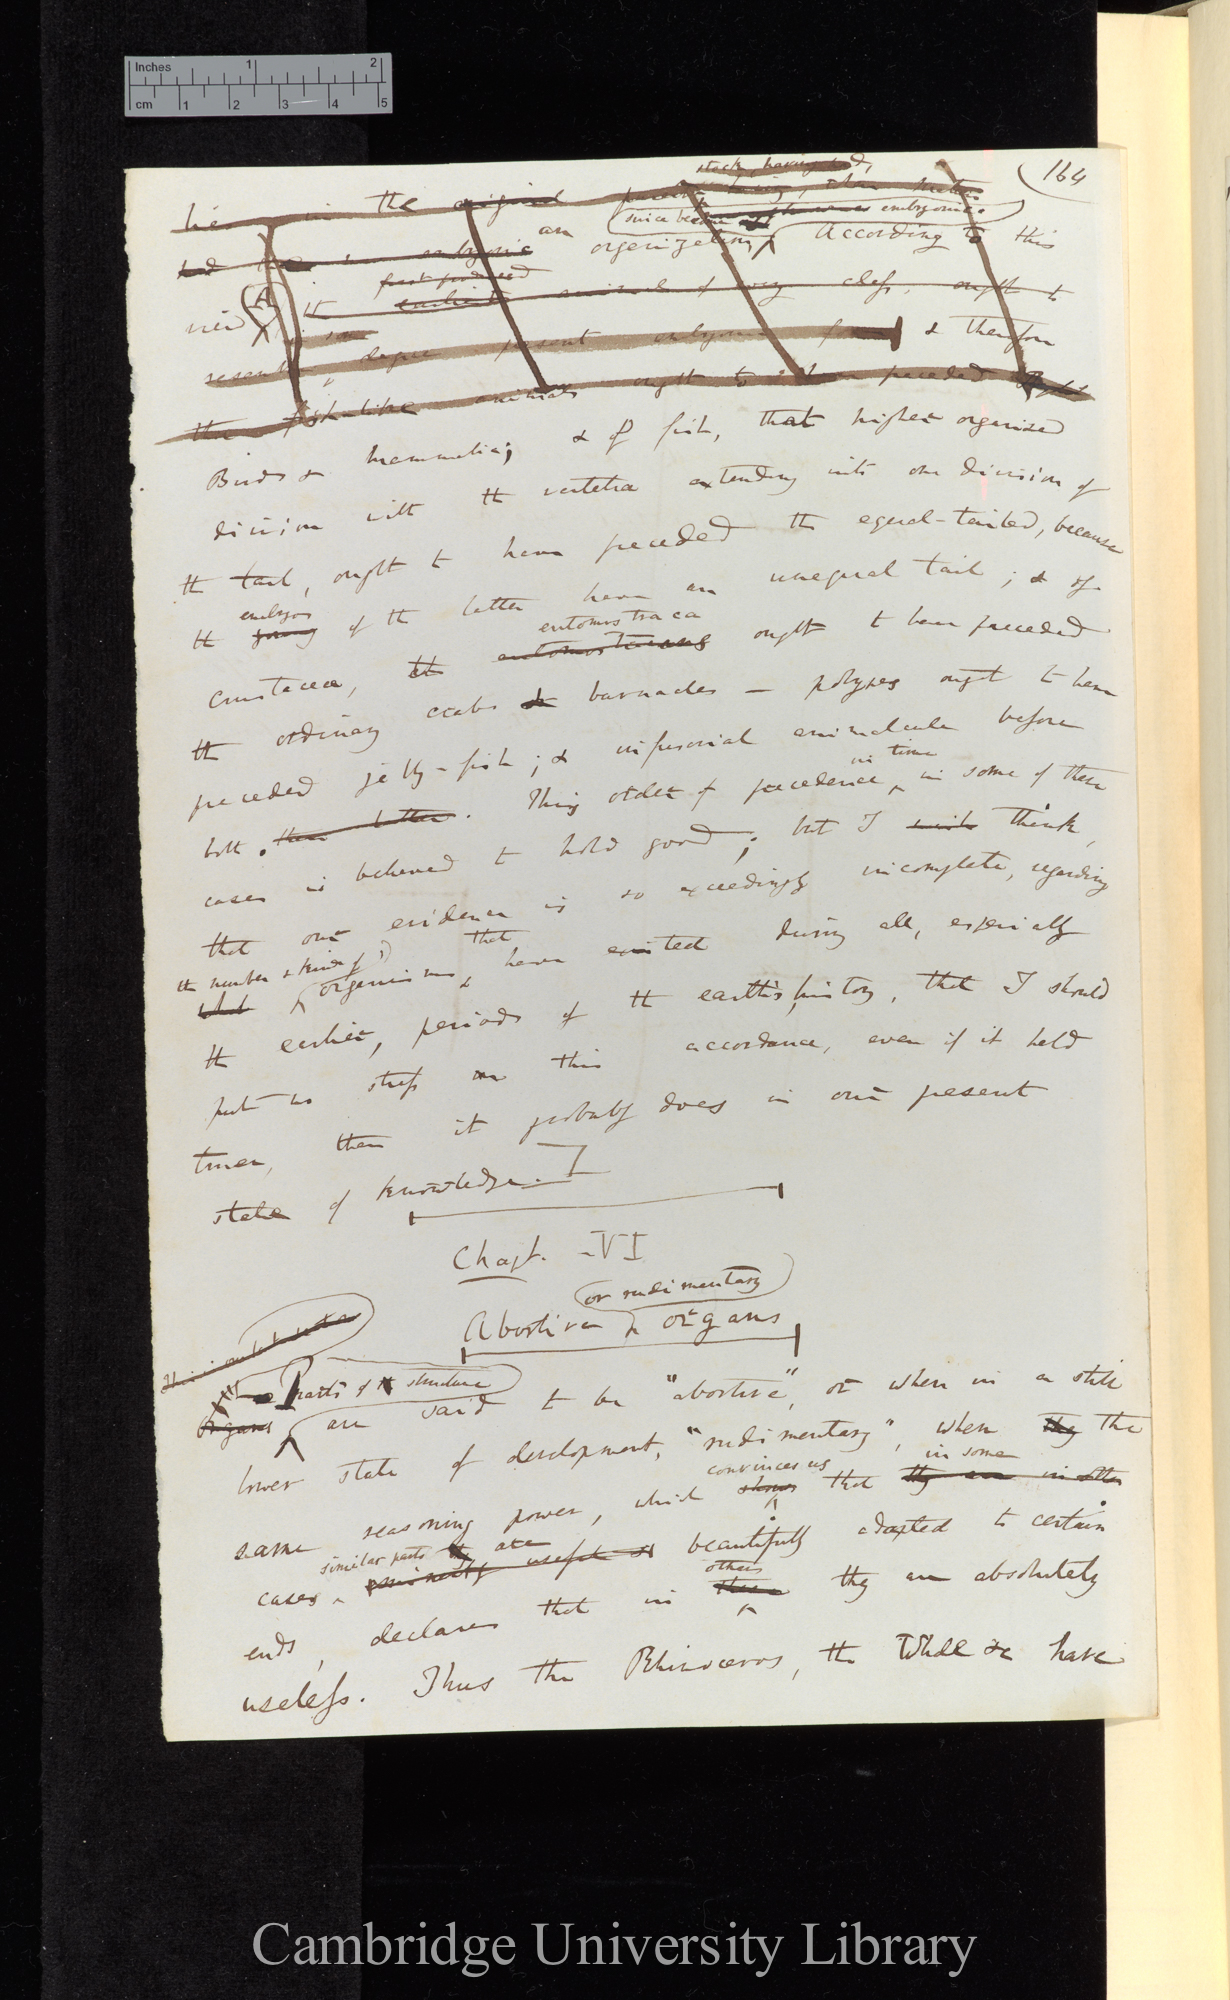 Inches 1 2
cm 1 2 3 4 5
164
stock, having had,
lies in the original
since become embryonic
an organization According to this
view
first produced
earliest animals of every class, ought to
resemble degree present & therefore
the fish-like animals ought to have preceded
Birds & mammalia; & of fish, that higher organized
division with the vertebra extending into one division of
the tail, ought to have preceded the equal-tailed, because
embryos
the young of the latter have an unequal tail; & of
entomostraca
Crustacea, the entomostracans ought to have preceded
the ordinary crabs & barnacles — polypes ought to have
preceded jelly-fish; & infusorial animalcule before
in time
both. This order of precedence, in some of these
cases is believed to hold good; but I think,
that our evidence is so exceedingly incomplete, regarding
the number & kinds of that
what organisms, have existed during all, especially
the earlier, periods of the earth's history, that I should
put no stress on this accordance, even if it held
truer, than it probably does in our present
state of knowledge.
Chapt. VI
or rudimentary
Abortive organs
Parts of structure
Organs are said to be "abortive", or when in a still
lower state of development, "rudimentary", when they the
convinces us in some
same reasoning power, which shows that they are in other
similar parts are
cases, eminently useful & beautifully adapted to certain
others
ends, declares that in these they are absolutely
useless. Thus the Rhinoceros, the Whale &c have
Cambridge University Library